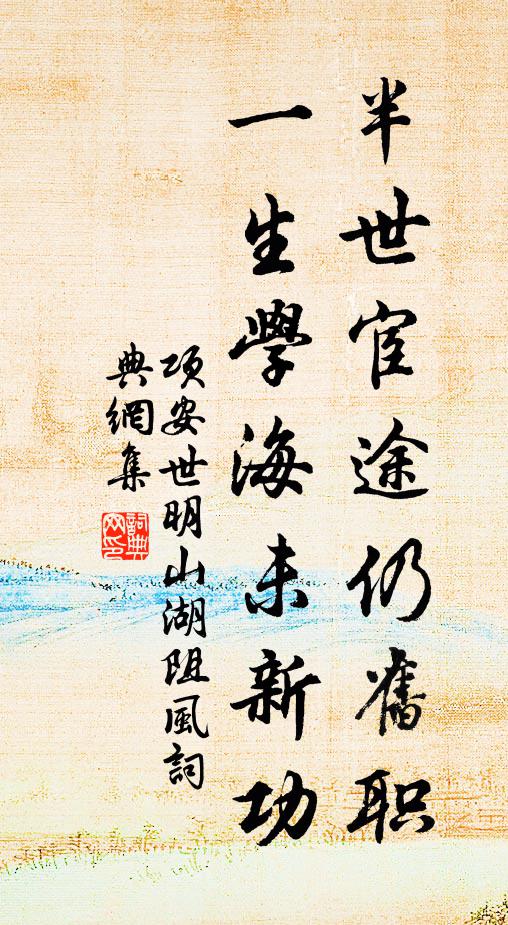 半世宦途仍舊职
一生學海未新功
項安世明山湖阻風詞
典網集
詞典网印